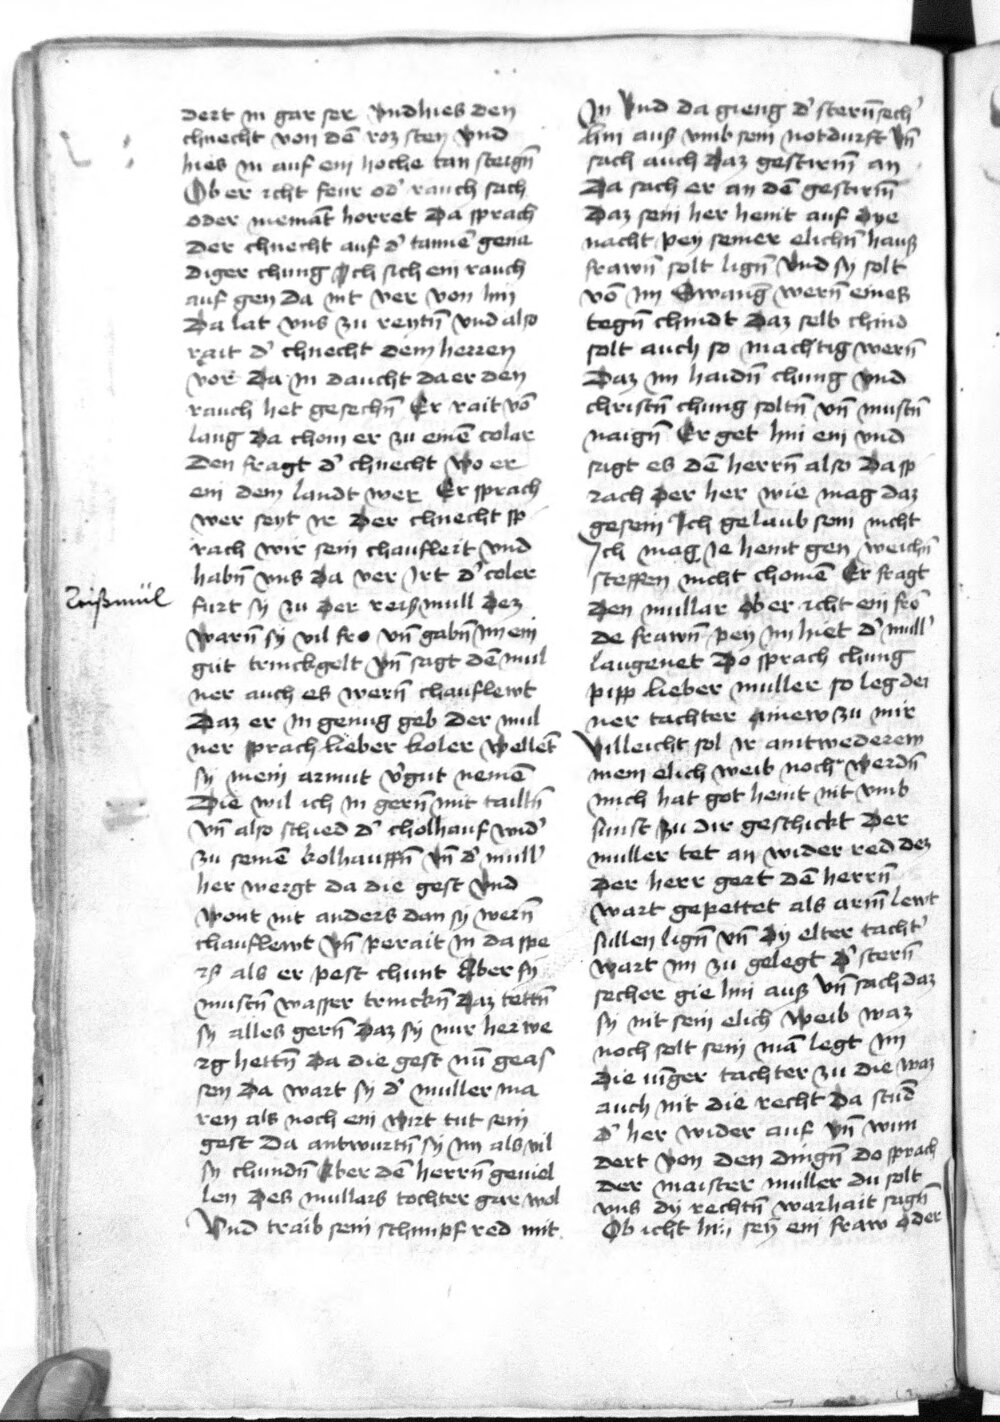 dert in gar ser Vnd hies den
chnecht von dē roz sten vnd
hies in auf ein hoche tan steign̄
Ob er icht feur od' rauch sach
oder niemāt horret Da sprach
der chnecht auf d' tannē gena
diger chung Ich sich ein rauch
auf gen da nit ver von hin
Da lat vns zu reytn̄ vnd also
rait d' chnecht dem herren
vor Da in daucht da er den
rauch het gesechn̄ Er rait vō
lang Da chom er zu einē colar
Den fragt d' chnecht wo er
ein dem landt wer Er sprach
wer seyt ir Der chnecht sp
rach wir sein chauflewt vnd
habn̄ vns da ver Irt d' coler
furt sy zu der reißmull dez
warn̄ sy vil fro vn̄ gabn̄ im ein
gut trinckgelt vn̄ sagt dē mul
ner auch es wern̄ chauflewt
Daz er in genug geb Der mul
ner sprach lieber koler wellet
sy mein armut v'gut nemē
Die wil ich in gern̄ mit tailn̄
vn̄ also schied d' cholhauf wid'
zu seinē kolhauffn̄ vn̄ d' mull'
her wergt da die gest vnd
wont nit anders dan sy wern̄
chauflewt vn̄ perait in da spe
is als er pest chunt Aber sy
mustn̄ wasser trinckn̄ daz tettn̄
sy alles gern̄ daz sy nur herwe
rg hettn̄ Da die gest nū geas
sen Da wart sy d' muller ma
ren als noch ein wirt tut sein
gest Da antwurtn̄ sy im als vil
sy chundn̄ Aber dē herrn̄ geuiel
len des mullars tochter gar wol
Vnd traib sein schimpf red mit
Reißmül
In Vnd da gieng d' stern̄sech'
hin auß vmb sein notdurft vn̄
sach auch daz gestirn̄ an
Da sach er an dē gestirn̄
Daz sein her heint auf dye
nacht pey seiner elichn̄ hauß
frawn̄ solt lign̄ Vnd sy solt
vō im swang wern̄ eines
tegn̄ chindt daz selb chind
solt auch so machtig wern̄
Daz im haidn̄ chung vnd
christn̄ chung soltn̄ vn̄ mustn̄
naign̄ Er get hin ein vnd
sagt es dē herrn̄ also Da sp
rach der her wie mag daz
gesein Ich gelaub sein nicht
Ich mag ie heint gen weichn̄
steffen nicht chomē Er fragt
den mullar ob er icht ein frō
de frawn̄ pey im hiet d' mull'
laugenet Do sprach chung
pipp lieber muller so leg dei
ner tachter ainew zu mir
Villeicht sol ir antwederew
mein elich weib noch werdn̄
mich hat got heint nit vmb
sunst zu dir geschickt der
muller tet an wider red dez
der herr gert dē herrn̄
wart gepettet als arm̄ lewt
sullen lign̄ vn̄ dy elter tacht'
wart im zu gelegt d' stern̄
secher gie hin auß vn̄ sach daz
sy nit sein elich weib waz
noch solt sein mā legt im
die iunger tachter zu die waz
auch nit die recht Da stūd
d' her wider auf vn̄ wun
dert von den dingn̄ do sprach
der maister muller du solt
vns dy rechtn̄ warhait sagn̄
Ob icht hin sey ein fraw oder